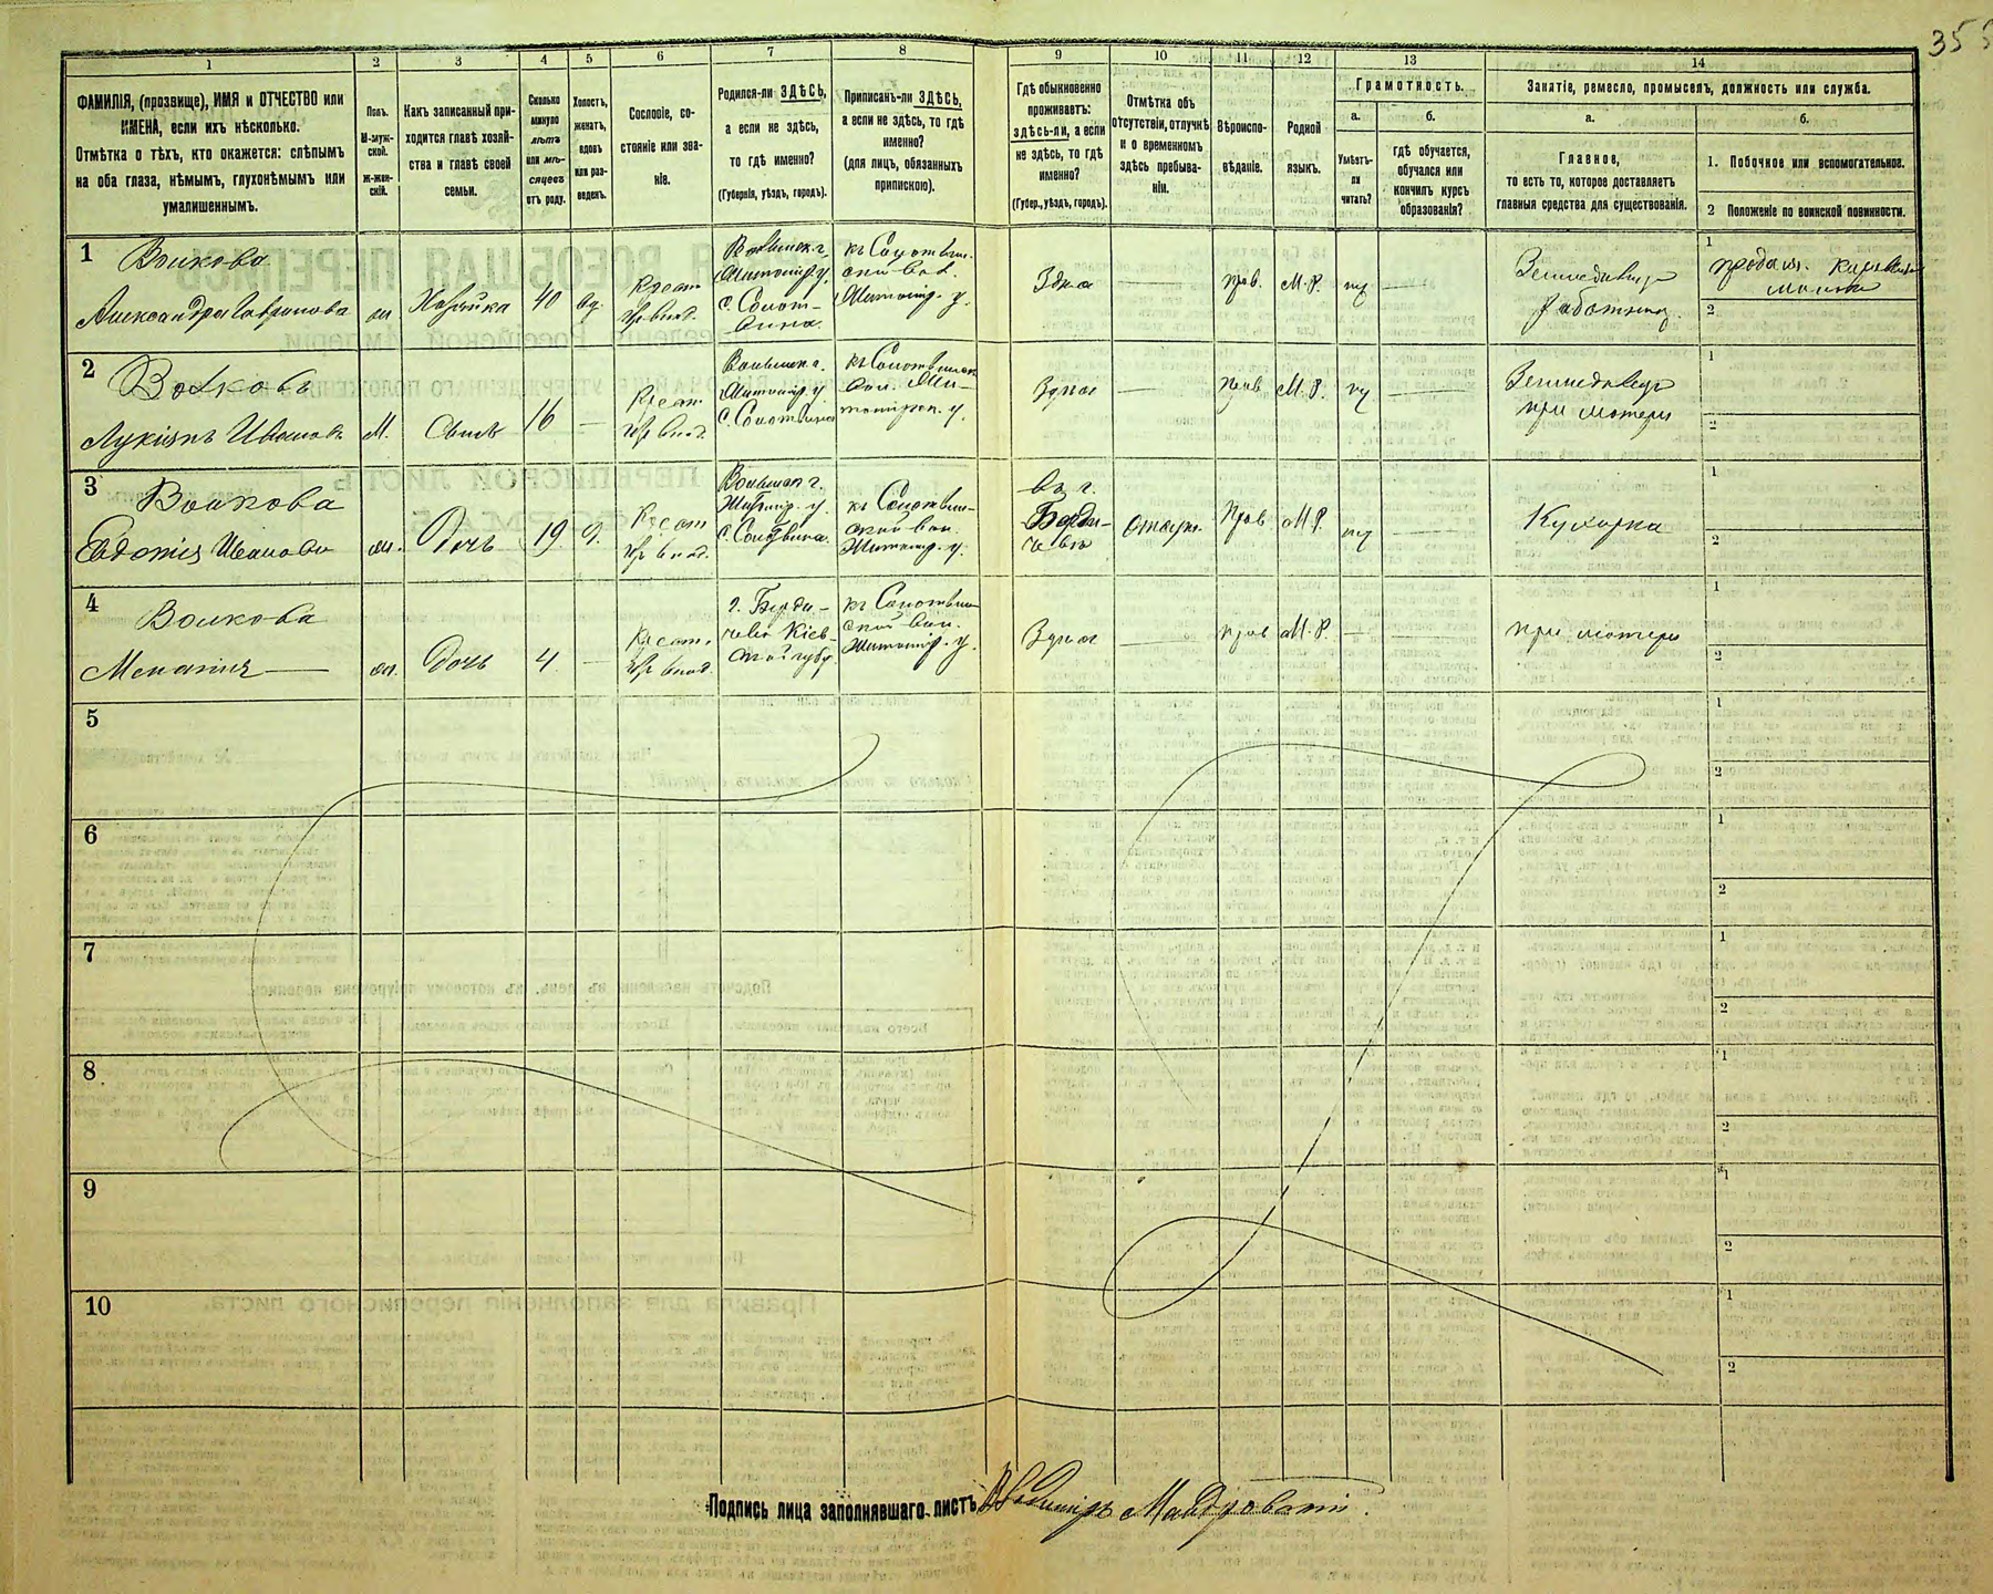 355
1 2 3 4 5 6 7 8 9 10 11 12 13 14
ФАМИЛІЯ, (прозвище), ИМЯ и ОТЧЕСТВО или
ИМЕНА, если ихъ нѣсколько.
Отмѣтка о тѣхъ, кто окажется: слѣпымъ
на оба глаза, нѣмымъ, глухонѣмымъ или
умалишеннымъ.
Полъ.
М-муж-
ской.
Ж-жен-
скій.
Какъ записанный при-
ходится главѣ хозяй-
ства и главѣ своей
семьи.
Сколько
минуло
лѣтъ
или мѣ-
сяцевъ
отъ роду.
Холостъ,
женатъ,
вдовъ
или раз-
веденъ.
Сословіе, со-
стояніе или зва-
ніе.
Родился-ли ЗДѢСЬ,
а если не здѣсь,
то гдѣ именно?
(Губернія, уѣздъ, городъ).
Приписанъ-ли ЗДѢСЬ,
а если не здѣсь, то гдѣ
именно?
(для лицъ, обязанныхъ
припискою).
Гдѣ обыкновенно
проживаетъ:
здѣсь-ли, а если
не здѣсь, то гдѣ
именно?
(Губер., уѣздъ, городъ).
Отмѣтка объ
отсутствіи, отлучкѣ
и о временномъ
здѣсь пребыва-
ніи.
Вѣроиспо-
вѣданіе.
Родной
языкъ.
Грамотность.
а.
Умѣетъ-
ли
читать?
б.
гдѣ обучается,
обучался или
кончилъ курсъ
образованія?
Занятіе, ремесло, промыселъ, должность или служба.
а.
Главное,
то есть то, которое доставляетъ
главныя средства для существованія.
б.
1. Побочное или вспомогательное.
2 Положеніе по воинской повинности.
1
Волкова
Александра Гавриловa
ж
Хозяйка
40
вд.
Крест
Волынск. г.
Житомир. у.
с. Солот-
вина
къ Солотвин.
ской вол.
Житомір. у.
Здѣсь
—
прав.
М.Р.
нѣ
—
Земледѣлецъ
работниц.
1
молока
2
2
Волковъ
Лукіянъ Ивановъ
М.
Сынъ
16
—
Крест
Волынск г.
Житомир. у
с. Солотвина
къ Солотвинск
вол. Жи-
томірск. у.
Здѣсь
—
прав
М.Р.
нѣ
—
Земледѣлецъ
при матери
1
2
3
Волкова
Евдокія Иванова
ж.
Дочь
19
д.
Крест
Волынск г.
Житмир. у.
с. Солотвина.
къ Солотвин-
ской вол.
Житомир. у.
въ г.
Берди-
чевѣ
Отсут.
Прав
М.Р.
нѣ
—
Кухарка
1
2
4
Волкова
Меланія —
ж.
Дочь
4
—
Крест.
г. Берди-
чевъ Кіев-
ской губ.
къ Солотвин
ской вол.
Житомир. у.
Здѣсь
—
прав
М.Р.
—
—
при матери
1
2
5
1
2
6
1
2
7
1
2
8
1
2
9
1
2
10
1
2
Подпись лица заполнявшаго листъ